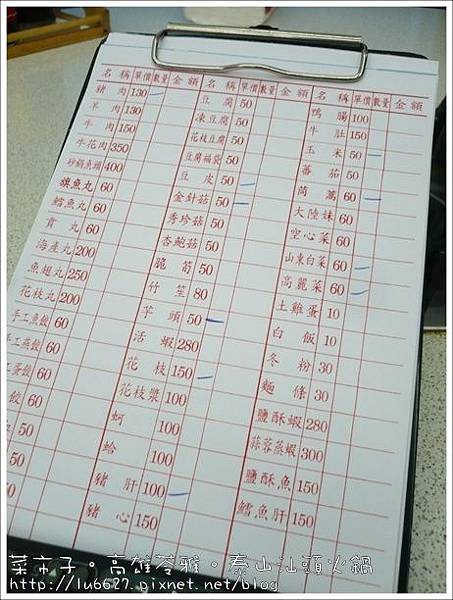 名稱 單價 數量 金額
豬肉 130
羊肉 130
牛肉 150
牛花肉 350
砂鍋魚頭 400
旗魚丸 60
鱈魚丸 60
貢丸 60
海産丸 200
魚翅丸 250
花枝丸 200
手工魚餃 60
手工燕餃 60
工蛋餃 60
餃 60
50
50
50
名稱 單價 數量 金額
豆腐 50
凍豆腐 50
花枝豆腐 50
豆腐福袋 50
豆皮 50
金針菇 50
秀珍菇 50
杏鮑菇 50
脆筍 50
竹笙 80
芋頭 50
活蝦 280
花枝 150
花枝漿 100
蚵 100
蛤 100
豬肝 100
豬心 150
名稱 單價 數量 金額
鴨腸 100
牛肚 150
玉米 50
蕃茄 50
茼蒿 60
大陸妹 60
空心菜 60
山東白菜 60
高麗菜 60
土雞蛋 10
白飯 10
冬粉 30
麵條 30
鹽酥蝦 280
蒜蓉蒸蝦 300
鹽酥魚 150
鱈魚肝 150
菜市子。高雄苓雅。泰山汕頭火鍋
http://lu6627.pixnet.net/blog